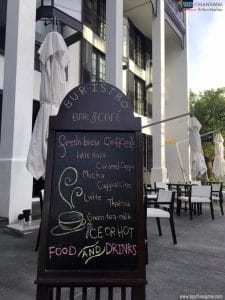 TOPCHIANGMAI
BURISTRO
BAR & CAFÉ
fresh brew Coffee
Latte Hazel
Caramel Cappu
Mocha
Cappuccino
Latte
Thai tea
Green tea-milk
ICE OR HOT
FOOD AND DRINKS
www.topchiangmai.com